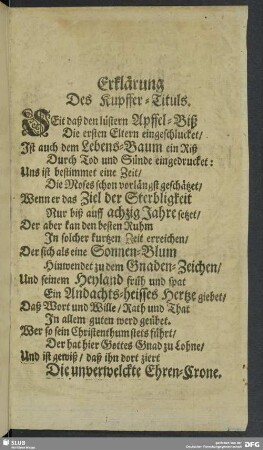 Erklärung
Des Kupffer-Tituls.
SEit daß den lüstern Apffel-Biß
Die ersten Eltern eingeschlucket/
Ist auch dem Lebens-Baum ein Riß
Durch Tod und Sünde eingedrucket:
Uns ist bestimmet eine Zeit/
Die Moses schon vorlängst geschätzet/
Wenn er das Ziel der Sterbligkeit
Nur biß auff achzig Jahre setzet/
Der aber kan den besten Ruhm
In solcher kurtzen Zeit erreichen/
Der sich als eine Sonnen-Blum
Hinwendet zu dem Gnaden-Zeichen/
Und seinem Heyland früh und spat
Ein Andachts-heisses Hertze giebet/
Daß Wort und Wille/ Rath und That
In allem guten werd geübet.
Wer so sein Christenthum stets führt/
Der hat hier Gottes Gnad zu Lohne/
Und ist gewiß/ daß ihn dort ziert
Die unverwelckte Ehren-Crone.
SLUB
DFG